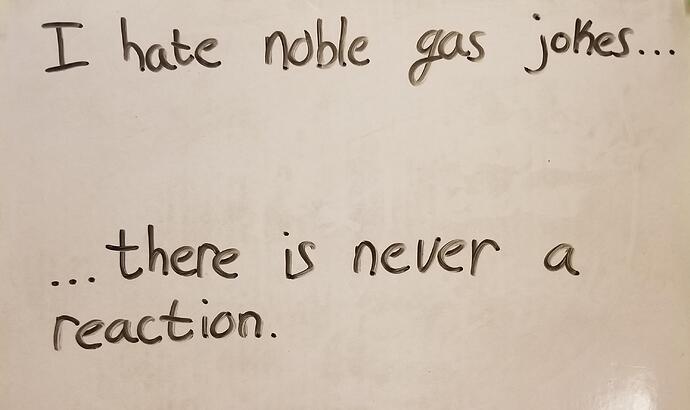 I hate noble gas jokes...
...there is never a
reaction.